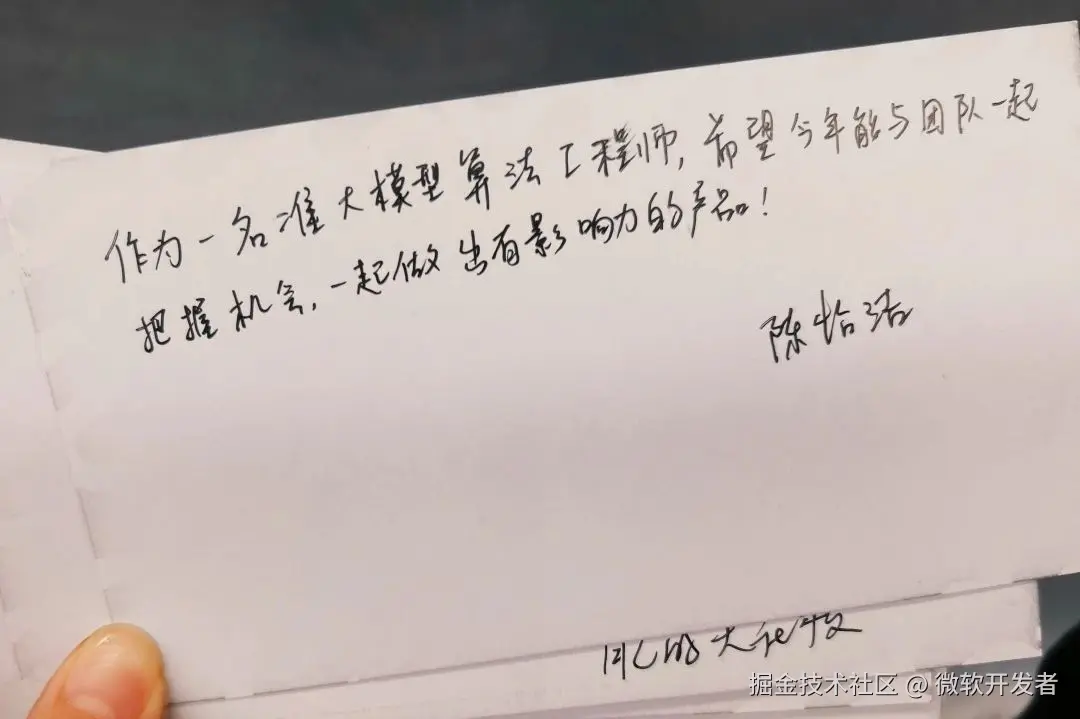 作为一名准大模型算法工程师,希望今年能与团队一起
把握机会,一起做出有影响力的产品!
陈怡洁
掘金技术社区 @ 微软开发者